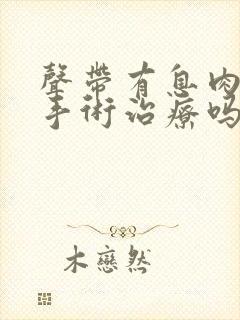 聲帶有息肉
手術治療吗
木戀然